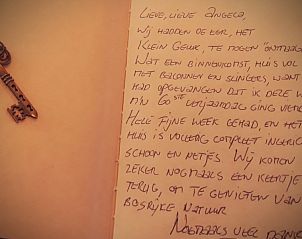 LIEVE, LIEVE ANGELA,
WIJ HADDEN DE EER, HET
KLEIN GELUK, TE MOGEN
WAT EEN BINNENKOMST, HUIS VOL
MET BALLONNEN EN SLINGERS, WANT
HAD OPGEVANGEN DAT IK DEZE W
M'N 60STE VERJAARDAG GING VIER
HELE FIJNE WEEK GEHAD, EN HET
HUIS IS VOLLEDIG COMPLEET INGERIC
SCHOON EN NETJES. WIJ KOMEN
ZEKER NOGMAALS EEN KEERTJE
TERUG, OM TE GENIETEN VAN
BOSRIJKE NATUUR
NOGMAALS VEEL